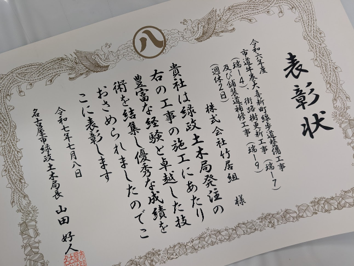 八
表彰状
令和六年度
市道牛巻大喜新町線歩道整備工事(瑞-17)
(瑞-14)、街路樹更新工事(瑞-9)
及び舗装道補修工事
(週休2日)
株式会社竹居組 様
貴社は緑政土木局発注の
右の工事の施工にあたり
豊富な経験と卓越した技
術を結集し優秀な成績を
おさめられましたのでこ
こに表彰します
令和七年七月八日
名古屋市緑政土木局長 山田 好人